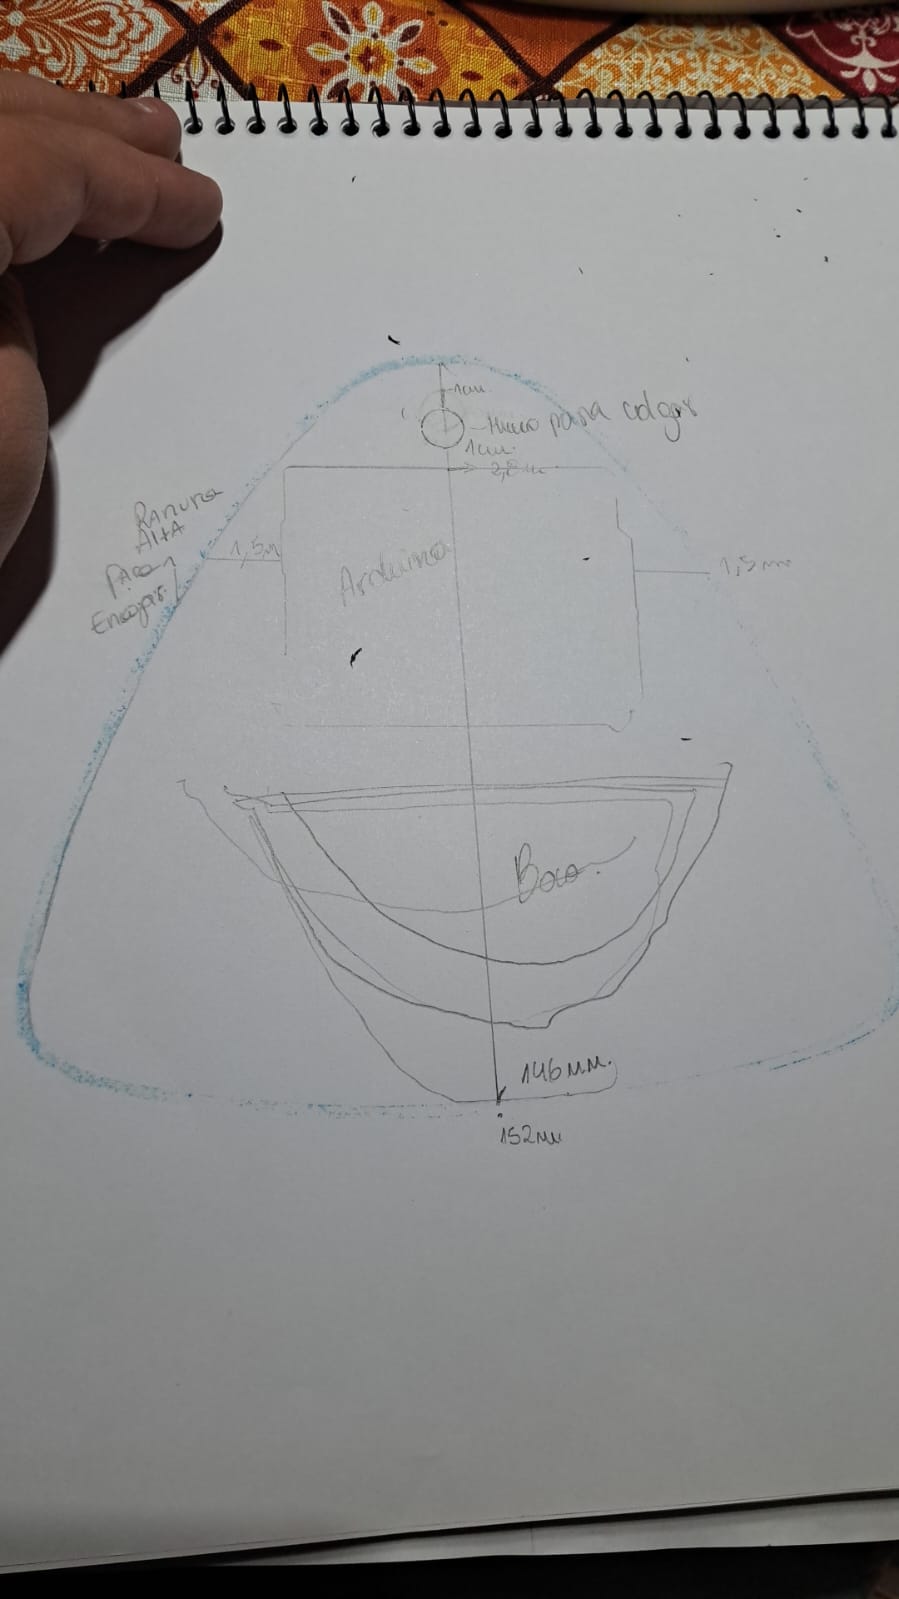 1cm.
Hueco para colgar
1cm.
Ranura
Alta
Para
Encajar.
1,5m
Arduino
1,5mm
Boca.
146mm.
152mm